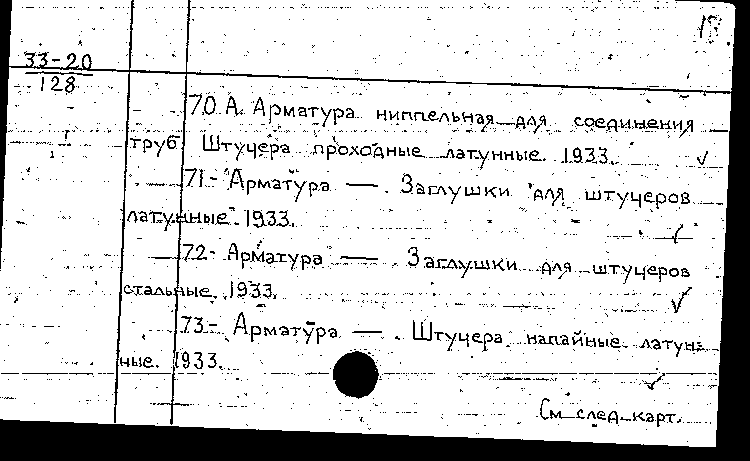 33-20
128
70 А. Арматура ниппельная для соединения
труб. Штуцера проходные латунные. 1933.
71- Арматура — . Заглушки для штуцеров
латунные. 1933.
72- Арматура — . Заглушки для штуцеров
стальные. 1933.
73- Арматура — . Штуцера напайные латун-
ные. 1933.
См след карт.